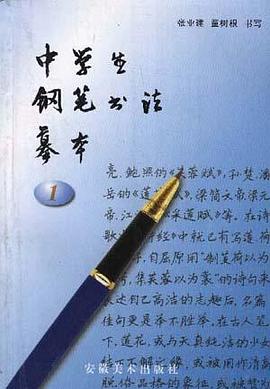 张业建 董树根 书写
中学生
钢笔书法
摹本
1
亮、鲍照的《芙蓉赋》,孙楚、潘
岳的《莲
赋》,梁简文帝、梁元
帝、江
《采莲赋》等。在诗
歌
经》中就已有写莲
自屈原用“制芰荷以为
,集芙蓉以为裳”的诗句来
表达自己高洁的志趣后,名篇
佳句更是举不胜举。在古人笔
下,莲花,或与天真纯洁的小女
结下不解之缘,或被用作清高
脱俗品格的象征,或
安徽美术出版社